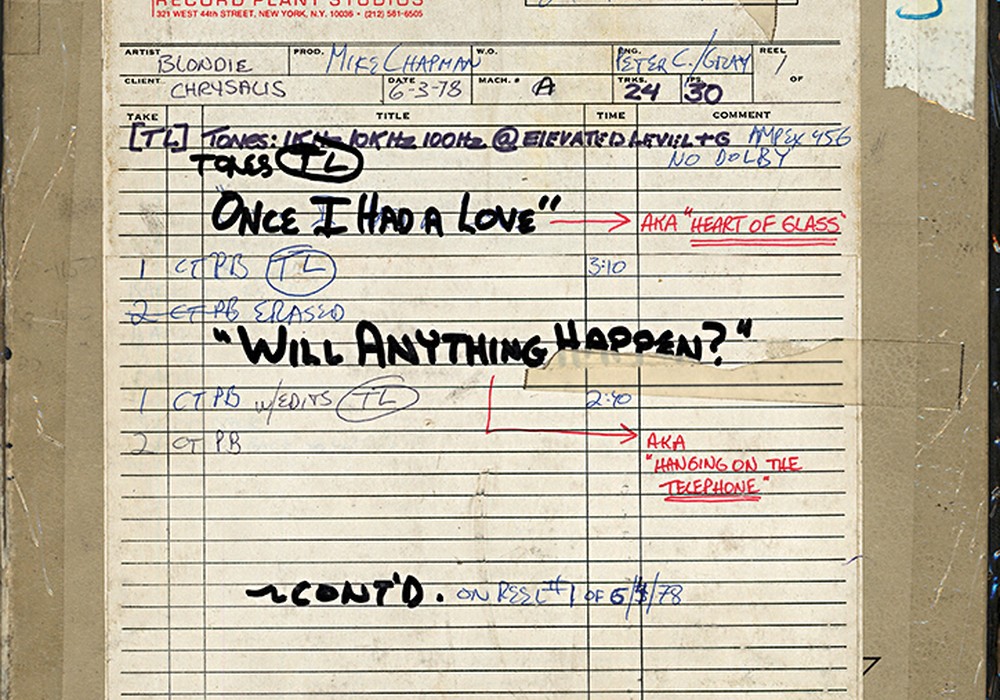 RECORD PLANT STUDIOS
321 WEST 44th STREET, NEW YORK, N.Y. 10036 • (212) 581-6505
ARTIST BLONDIE PROD. MIKE CHAPMAN W.O. ENG. PETER C./GRAY REEL 1 OF
CLIENT CHRYSALIS DATE 6-3-78 MACH. # A TRKS. 24 IPS 30
TAKE TITLE TIME COMMENT
[TL] TONES: 1KHz 10KHz 100Hz @ ELEVATED LEVEL +6 AMPEX 456
TONES TL NO DOLBY
"ONCE I HAD A LOVE" AKA "HEART OF GLASS"
1 CT PB TL 3:10
2 CT PB ERASED
"WILL ANYTHING HAPPEN?"
1 CT PB W/EDITS TL 2:40
2 CT PB AKA
"HANGING ON THE
TELEPHONE"
~CONT'D. ON REEL #1 OF 6/ /78